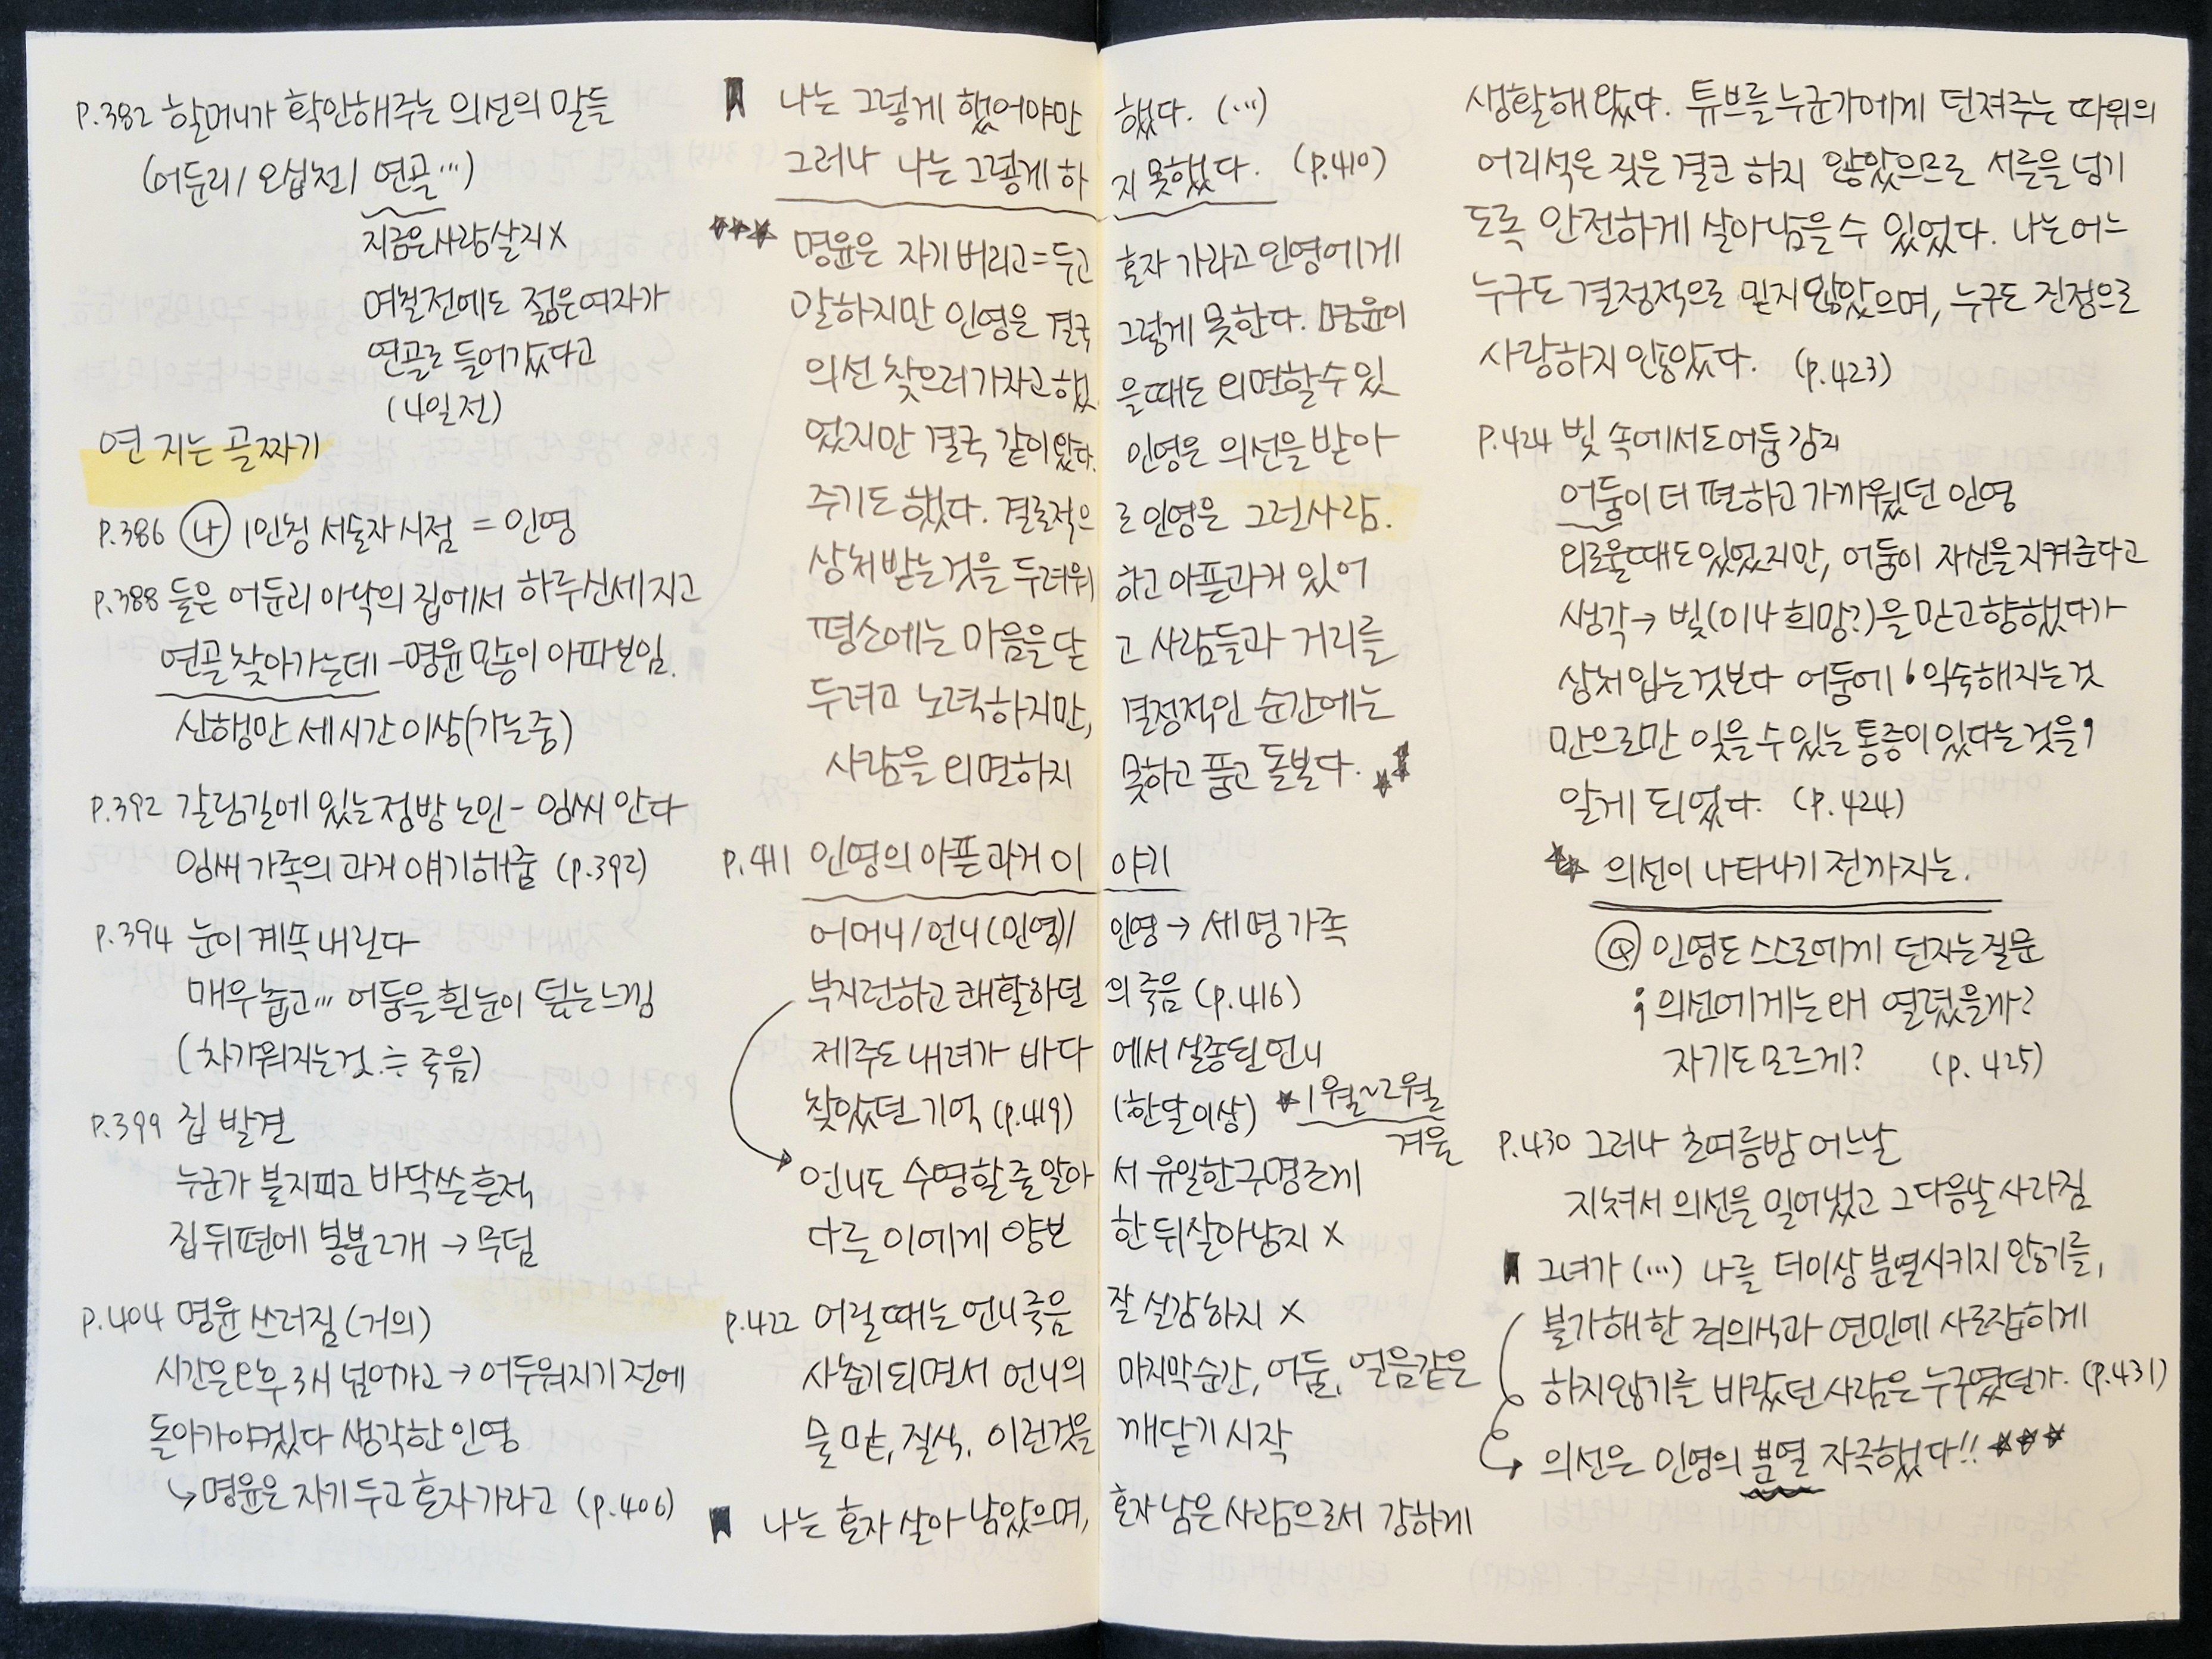 P.382 할머니가 확인해주는 의선의 말들
(어둔리/오십천/연골…)
지금은 사람 살지 X
며칠전에도 젊은 여자가
연골로 들어갔다고
(4일 전)
연 지는 골짜기
P.386 나 1인칭 서술자 시점 = 인영
P.388 둘은 어둔리 아낙의 집에서 하루 신세지고
연골 찾아가는데 - 명윤 많이 아파보임.
산행만 세시간 이상(가는중)
P.392 갈림길에 있는 정방노인 - 임씨 안다
임씨 가족의 과거 얘기해줌 (P.392)
P.394 눈이 계속 내린다
매우 춥고… 어둠을 흰 눈이 덮는 느낌
(차가워지는 것 ≒ 죽음)
P.399 집 발견
누군가 불지피고 바닥 쓴 흔적,
집 뒤편에 봉분 2개 → 무덤
P.404 명윤 쓰러짐 (거의)
시간은 오후 3시 넘어가고 → 어두워지기 전에
돌아가야겠다 생각한 인영
↳ 명윤은 자기 두고 혼자 가라고 (P.406)
나는 그렇게 했어야만 했다. (…)
그러나 나는 그렇게 하지 못했다. (P.410)
★★★ 명윤은 자기 버리고=두고 혼자 가라고 인영에게
말하지만 인영은 결국 그렇게 못한다. 명윤이
의선 찾으러 가자고 했을때도 외면할 수 있
었지만 결국 같이 왔다. 인영은 의선을 받아
주기도 했다. 결론적으로 인영은 그런 사람.
상처받는 것을 두려워하고 아픈 과거 있어
평소에는 마음을 닫고 사람들과 거리를
두려고 노력하지만, 결정적인 순간에는
사람을 외면하지 못하고 품고 돌본다. ★★
P.411 인영의 아픈 과거 이야기
어머니/언니(민영)/인영 → 세 명 가족
부지런하고 쾌활하던 의 죽음 (P.416)
제주도 내려가 바다에서 실종된 언니
찾았던 기억 (P.419) (한달 이상) ★ 1월~2월
겨울
언니도 수영할 줄 알아서 유일한 구명조끼
다른 이에게 양보한 뒤 살아남지 X
P.422 어릴 때는 언니 죽음 잘 실감하지 X
사춘기 되면서 언니의 마지막 순간, 어둠, 얼음같은
물 맛, 질식, 이런 것을 깨닫기 시작
나는 혼자 살아 남았으며, 혼자 남은 사람으로서 강하게
생활해 왔다. 튜브를 누군가에게 던져주는 따위의
어리석은 짓은 결코 하지 않았으므로 서른을 넘기
도록 안전하게 살아남을 수 있었다. 나는 어느
누구도 결정적으로 믿지 않았으며, 누구도 진정으로
사랑하지 않았다. (P.423)
P.424 빛 속에서도 어둠 감지
어둠이 더 편하고 가까웠던 인영
외로울때도 있었지만, 어둠이 자신을 지켜준다고
생각 → 빛(이나 희망?)을 믿고 향했다가
상처 입는 것보다 어둠에 ‘익숙해지는 것
만으로만 잊을 수 있는 통증이 있다는 것을’
알게 되었다. (P.424)
★★ 의선이 나타나기 전까지는.
Q 인영도 스스로에게 던지는 질문
; 의선에게는 왜 열렸을까?
자기도 모르게? (P.425)
P.430 그러나 초여름밤 어느날
지쳐서 의선을 밀어냈고 그 다음날 사라짐
그녀가 (…) 나를 더이상 분열시키지 않기를,
불가해한 죄의식과 연민에 사로잡히게
하지 않기를 바랐던 사람은 누구였던가. (P.431)
의선은 인영의 분열 자극했다!! ★★★
61